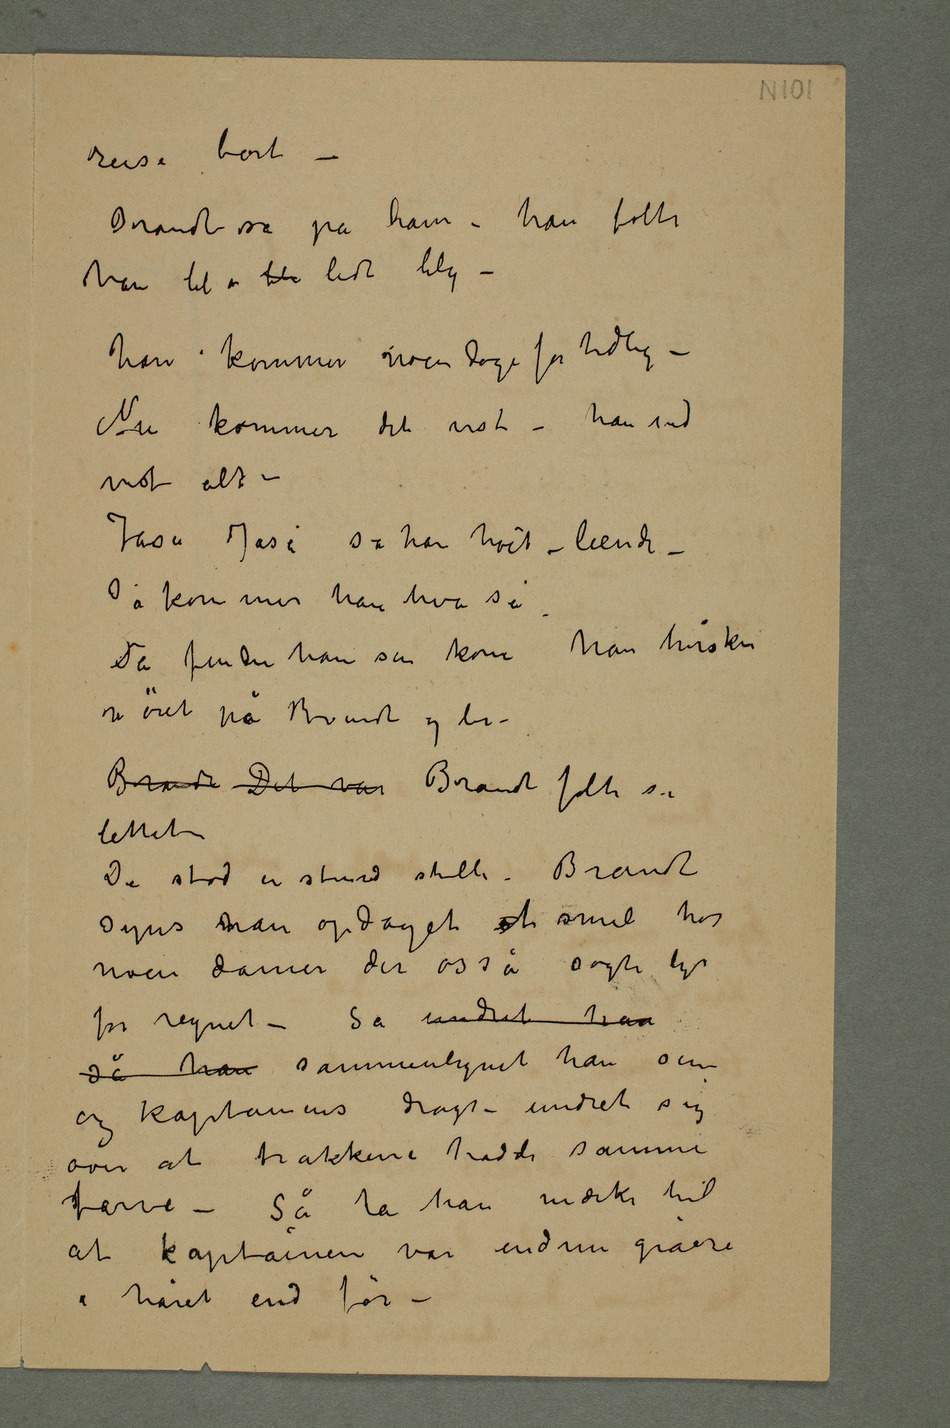 N101
reise bort –
Brandt så på ham – han følte
han til å bli lidt bleg –
han kommer noen dage for tidlig –
Nu kommer det vist – han ved
vist alt –
Jaså Jaså sa han höit – leende –
Så kommer han hva så
Då finder han sin kone han hvisker
i öret på Brandt og ler –
Brandt Det var Brandt følte sig
lettet
De stod en stund stille – Brandt
synes han opdaget et smil hos
noen damer der også søgte ly
for regnet – Så undret han
så han sammenlignet han sin
og kaptainens dragt – undret sig
over at frakkene hadde samme
farve – Så la han mærke til
at kaptainen var endnu gråere
i håret end för –